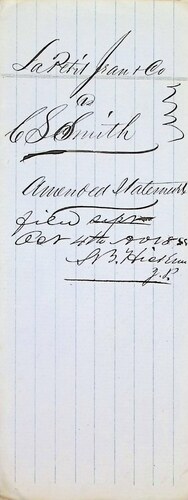 LaPetit Jean & Co
vs
C S Smith
Amended Statement
filed sept
Oct 4th AD 18
S B
J. P.